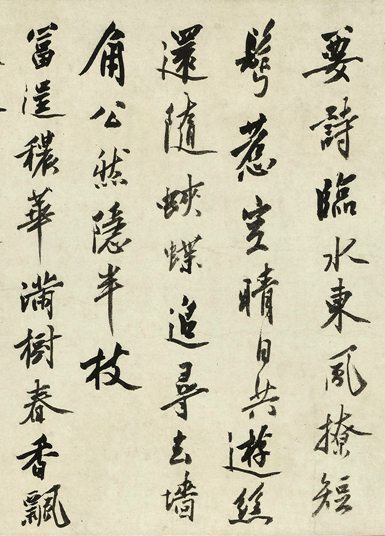 要詩臨水東風撩短
鬢惹空晴日共遊絲
還隨蛺蝶追尋去墻
角公然隱半枝
富逞穠華滿樹春香飄